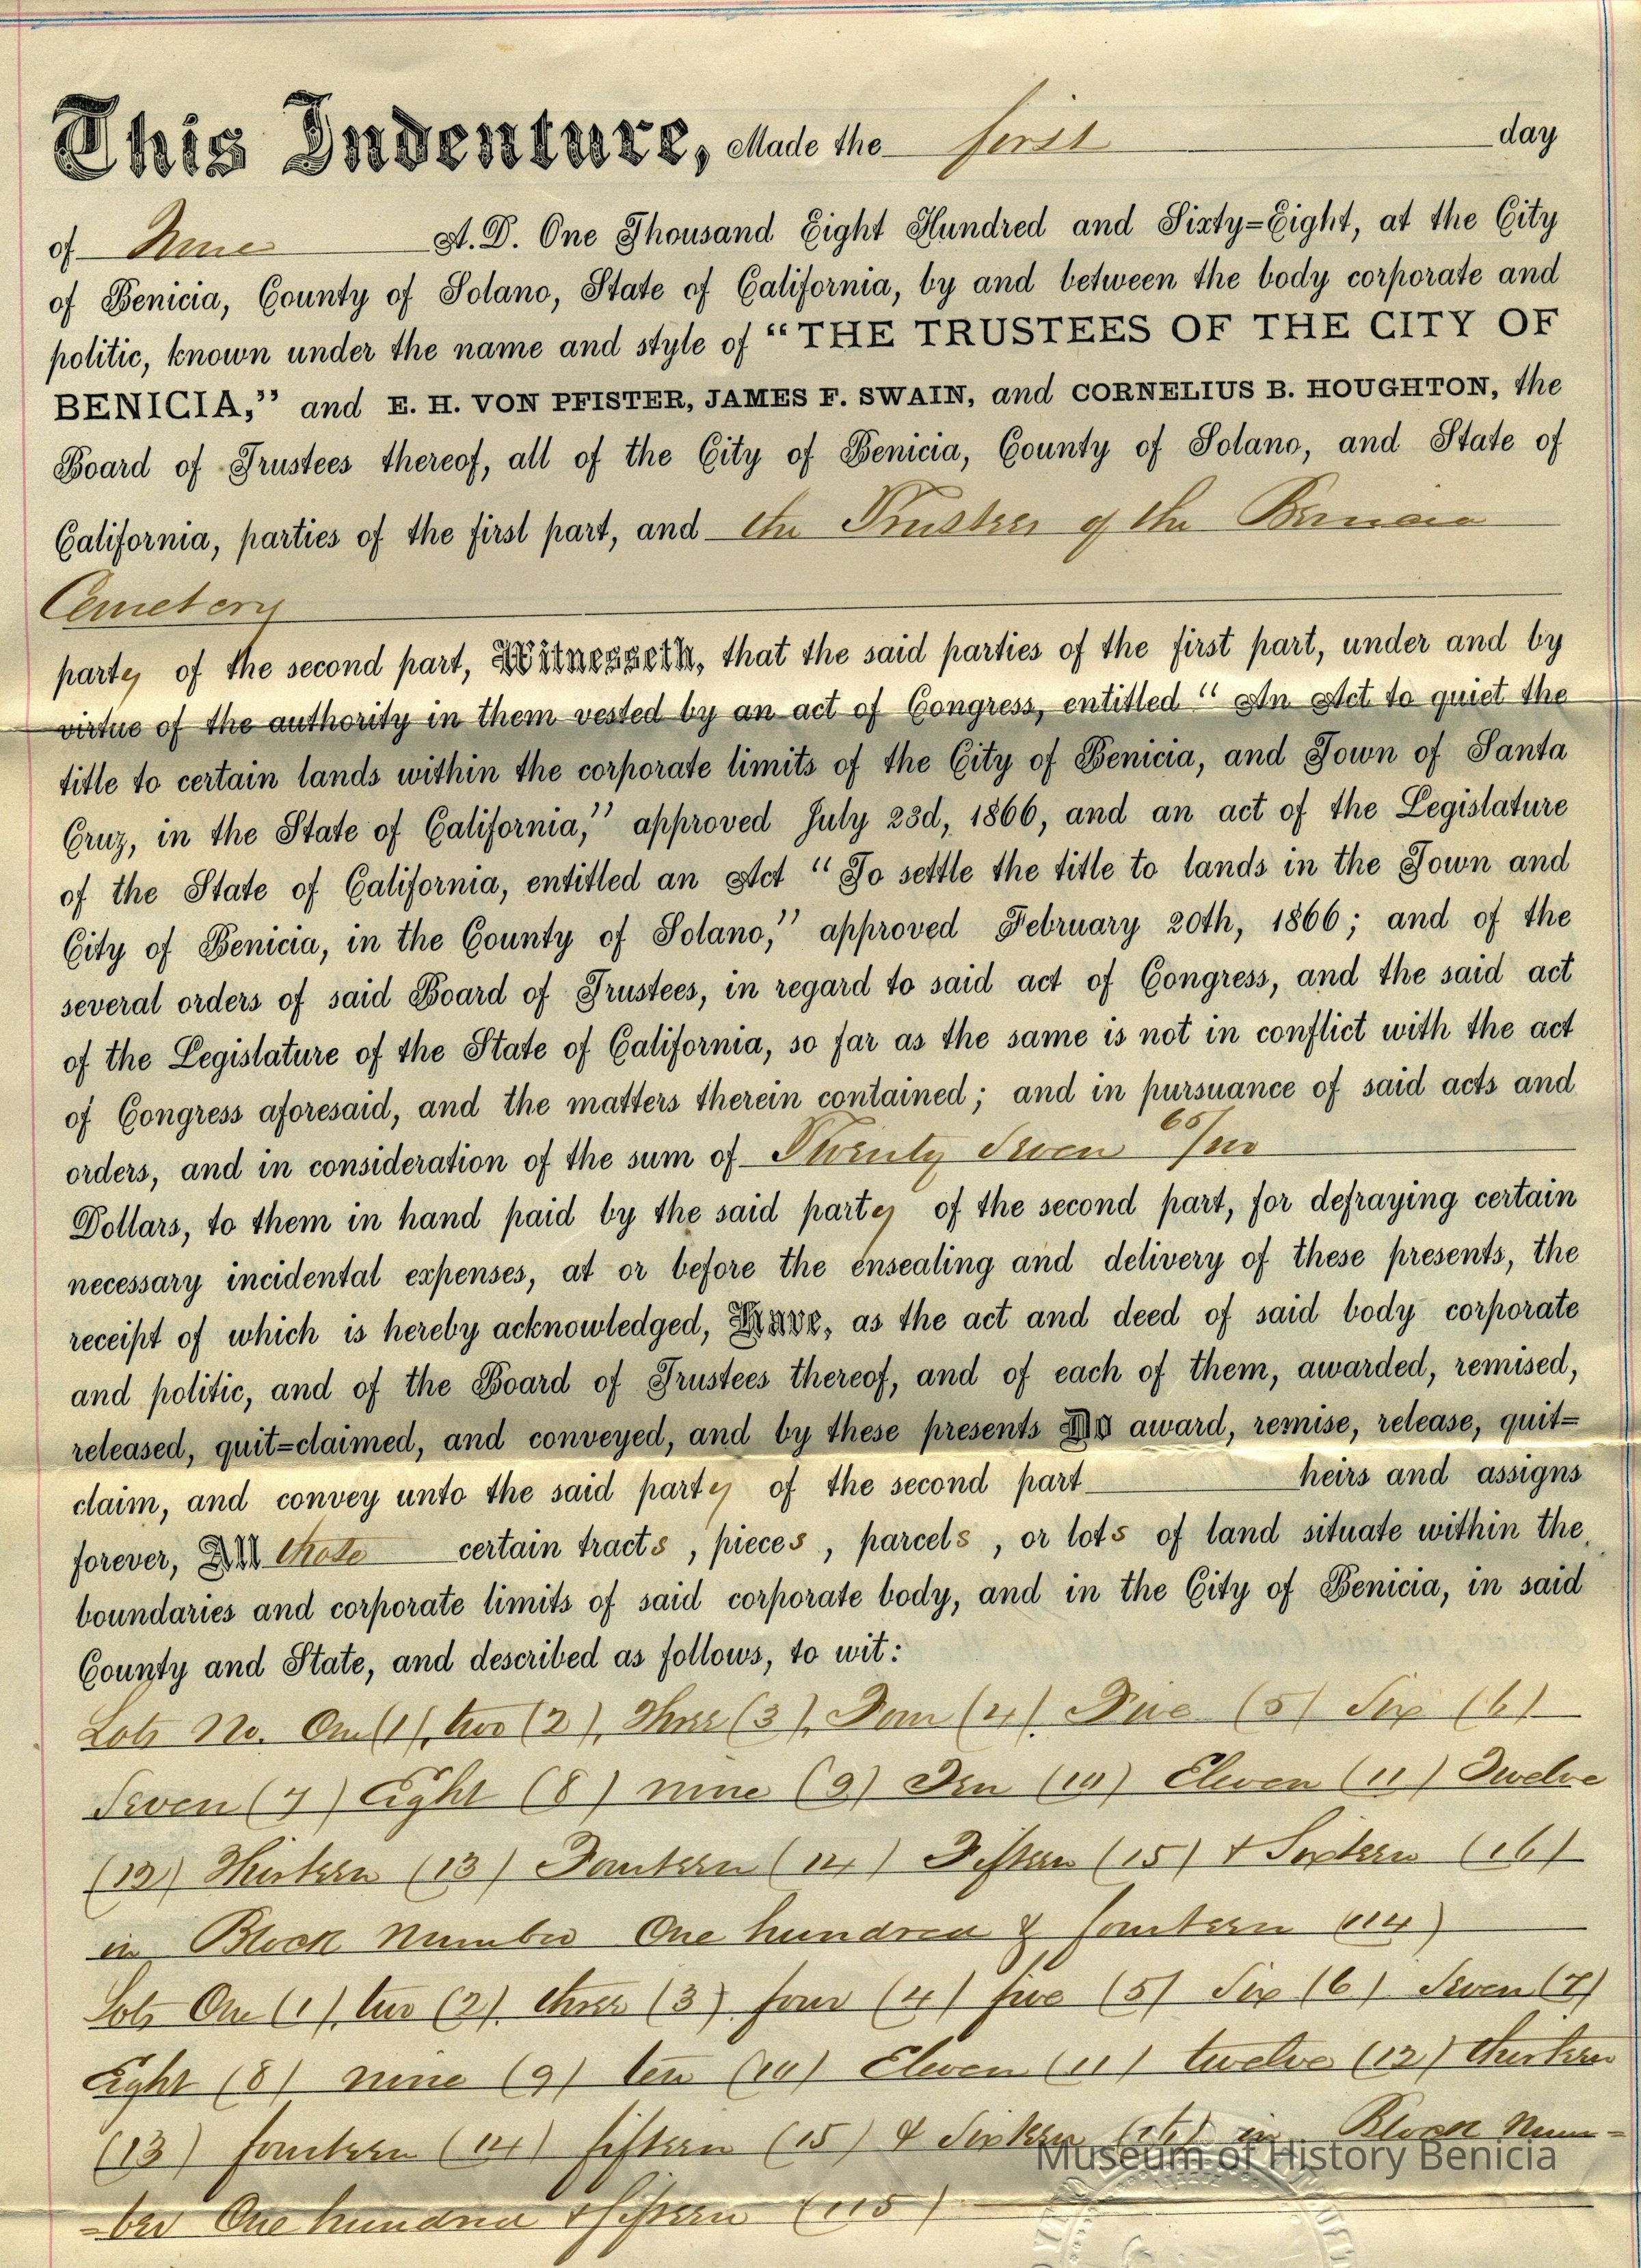 This Indenture, Made the first day
of June A. D. One Thousand Eight Hundred and Sixty=Eight, at the City
of Benicia, County of Solano, State of California, by and between the body corporate and
politic, known under the name and style of "THE TRUSTEES OF THE CITY OF
BENICIA," and E. H. VON PFISTER, JAMES F. SWAIN, and CORNELIUS B. HOUGHTON, the
Board of Trustees thereof, all of the City of Benicia, County of Solano, and State of
California, parties of the first part, and the Trustees of the Benicia
Cemetery
party of the second part, Witnesseth, that the said parties of the first part, under and by
virtue of the authority in them vested by an act of Congress, entitled "An Act to quiet the
title to certain lands within the corporate limits of the City of Benicia, and Town of Santa
Cruz, in the State of California," approved July 23d, 1866, and an act of the Legislature
of the State of California, entitled an Act "To settle the title to lands in the Town and
City of Benicia, in the County of Solano," approved February 20th, 1866; and of the
several orders of said Board of Trustees, in regard to said act of Congress, and the said act
of the Legislature of the State of California, so far as the same is not in conflict with the act
of Congress aforesaid, and the matters therein contained; and in pursuance of said acts and
orders, and in consideration of the sum of Twenty Seven 65/100
Dollars, to them in hand paid by the said party of the second part, for defraying certain
necessary incidental expenses, at or before the ensealing and delivery of these presents, the
receipt of which is hereby acknowledged, Have, as the act and deed of said body corporate
and politic, and of the Board of Trustees thereof, and of each of them, awarded, remised,
released, quit=claimed, and conveyed, and by these presents Do award, remise, release, quit=
claim, and convey unto the said party of the second part heirs and assigns
forever, All those certain tracts, pieces, parcels, or lots of land situate within the
boundaries and corporate limits of said corporate body, and in the City of Benicia, in said
County and State, and described as follows, to wit:
Lots No. One (1), two (2), Three (3), Four (4), Five (5) Six (6)
Seven (7) Eight (8) nine (9) Ten (10) Eleven (11) Twelve
(12) Thirteen (13) Fourteen (14) Fifteen (15) & Sixteen (16)
in Block Number One hundred & fourteen (114)
Lots One (1), two (2), three (3) four (4) five (5) Six (6) Seven (7)
Eight (8) nine (9) ten (10) Eleven (11) twelve (12) thirteen
(13) fourteen (14) fifteen (15) & Sixteen (16) in Block Num=
=ber One hundred & fifteen (115)
Museum of History Benicia